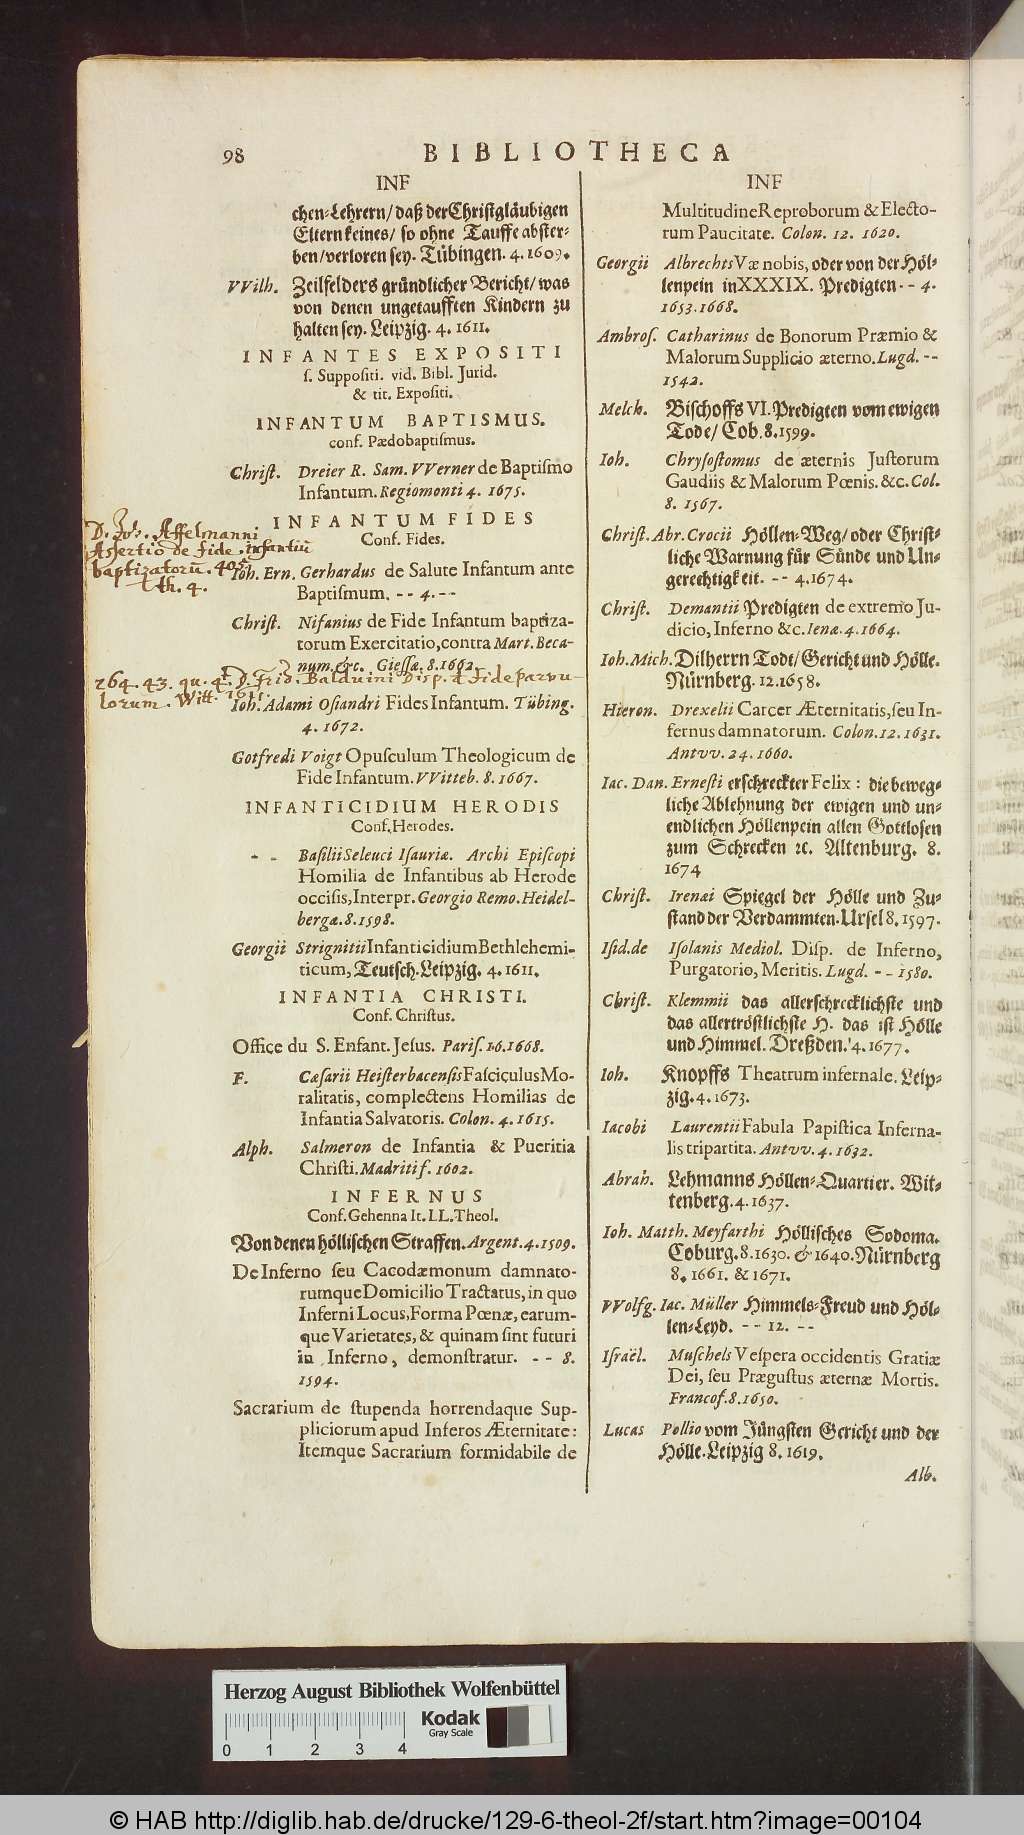 98
BIBLIOTHECA
INF
chen-Lehrern/daß der Christgläubigen
Eltern keines/ so ohne Tauffe abster-
ben/verloren sey. Tübingen. 4. 1609.
VVilh. Zeilfelders gründlicher Bericht/was
von denen ungetaufften Kindern zu
halten sey. Leipzig. 4. 1611.
INFANTES EXPOSITI
ſ. Suppoſiti. vid. Bibl. Jurid.
& tit. Expoſiti.
INFANTUM BAPTISMUS.
conf. Pædobaptiſmus.
Chriſt. Dreier R. Sam. VVerner de Baptiſmo
Infantum. Regiomonti 4. 1675.
INFANTUM FIDES
Conf. Fides.
D. Joh. Affelmanni
Assertio de fide infantiū
baptizatorū. 405
th. 4.
Ioh. Ern. Gerhardus de Salute Infantum ante
Baptiſmum. -- 4. --
Chriſt. Nifanius de Fide Infantum baptiza-
torum Exercitatio, contra Mart. Beca-
num &c. Gieſſæ. 8. 1662.
264. 43. qu. 4. D. Frid. Balduini Disp. d fide parvu-
lorum. Witt.
Ioh. Adami Oſiandri Fides Infantum. Tübing.
4. 1672.
Gotfredi Voigt Opuſculum Theologicum de
Fide Infantum. VVitteb. 8. 1667.
INFANTICIDIUM HERODIS
Conf. Herodes.
- - Baſilii Seleuci Iſauriæ. Archi Epiſcopi
Homilia de Infantibus ab Herode
occiſis, Interpr. Georgio Remo. Heidel-
bergæ. 8. 1598.
Georgii Strignitii Infanticidium Bethlehemi-
ticum, Teutsch. Leipzig. 4. 1611.
INFANTIA CHRISTI.
Conf. Chriſtus.
Office du S. Enfant. Jeſus. Pariſ. 16. 1668.
F. Cæſarii Heiſterbacenſis Faſciculus Mo-
ralitatis, complectens Homilias de
Infantia Salvatoris. Colon. 4. 1615.
Alph. Salmeron de Infantia & Pueritia
Chriſti. Madriti f. 1602.
INFERNUS
Conf. Gehenna It. LL. Theol.
Von denen höllischen Straffen. Argent. 4. 1509.
De Inferno ſeu Cacodæmonum damnato-
rumque Domicilio Tractatus, in quo
Inferni Locus, Forma Pœnæ, earum-
que Varietates, & quinam ſint futuri
in Inferno, demonſtratur. -- 8.
1594.
Sacrarium de ſtupenda horrendaque Sup-
pliciorum apud Inferos Æternitate:
Itemque Sacrarium formidabile de
INF
Multitudine Reproborum & Electo-
rum Paucitate. Colon. 12. 1620.
Georgii Albrechts Væ nobis, oder von der Höl-
lenpein in XXXIX. Predigten -- 4.
1653. 1668.
Ambroſ. Catharinus de Bonorum Præmio &
Malorum Supplicio æterno. Lugd. --
1542.
Melch. Bischoffs VI. Predigten vom ewigen
Tode/ Cob. 8. 1599.
Ioh. Chryſoſtomus de æternis Juſtorum
Gaudiis & Malorum Pœnis. &c. Col.
8. 1567.
Chriſt. Abr. Crocii Höllen-Weg/ oder Christ-
liche Warnung für Sünde und Un-
gerechtigkeit. -- 4. 1674.
Chriſt. Demantii Predigten de extremo Ju-
dicio, Inferno &c. Ienæ. 4. 1664.
Ioh. Mich. Dilherrn Todt/ Gericht und Hölle.
Nürnberg. 12. 1658.
Hieron. Drexelii Carcer Æternitatis, ſeu In-
fernus damnatorum. Colon. 12. 1631.
Antvv. 24. 1660.
Iac. Dan. Erneſti erschreckter Felix: die beweg-
liche Ablehnung der ewigen und un-
endlichen Höllenpein allen Gottlosen
zum Schrecken ꝛc. Altenburg. 8.
1674
Chriſt. Irenæi Spiegel der Hölle und Zu-
stand der Verdammten. Ursel 8. 1597.
Iſid. de Iſolanis Mediol. Diſp. de Inferno,
Purgatorio, Meritis. Lugd. -- 1580.
Chriſt. Klemmii das allerschrecklichste und
das allertröstlichste H. das ist Hölle
und Himmel. Dreßden. 4. 1677.
Ioh. Knopffs Theatrum infernale. Leip-
zig. 4. 1673.
Iacobi Laurentii Fabula Papiſtica Inferna-
lis tripartita. Antvv. 4. 1632.
Abrah. Lehmanns Höllen-Quartier. Wit-
tenberg. 4. 1637.
Ioh. Matth. Meyfarthi Höllisches Sodoma.
Coburg. 8. 1630. & 1640. Nürnberg
8. 1661. & 1671.
VVolfg. Iac. Müller Himmels-Freud und Höl-
len-Leyd. -- 12. --
Iſraël. Muſchels Veſpera occidentis Gratiæ
Dei, ſeu Præguſtus æternæ Mortis.
Francof. 8. 1650.
Lucas Pollio vom Jüngsten Gericht und der
Hölle. Leipzig 8. 1619.
Alb.
Herzog August Bibliothek Wolfenbüttel
Kodak
Gray Scale
0 1 2 3 4
© HAB http://diglib.hab.de/drucke/129-6-theol-2f/start.htm?image=00104